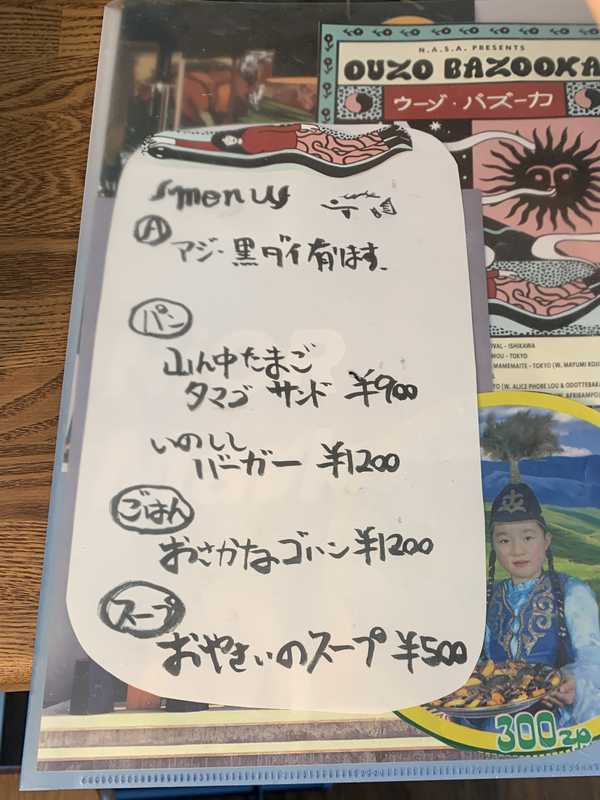 N.A.S.A. PRESENTS
OUZO BAZOOKA
ウーゾ・バズーカ
menu
A
アジ・黒ダイ有ります、
パン
山ん中たまご
タマゴ サンド ¥900
いのしし
バーガー ¥1200
ごはん
おさかなゴハン ¥1200
スープ
おやさいのスープ ¥500
VAL - ISHIKAWA
MOU - TOKYO
MAMEMAITE - TOKYO (W. MAYUMI KOJI
(W. ALICE PHOBE LOU & ODOTTEBAK
(W. AFRIKAMPO
300